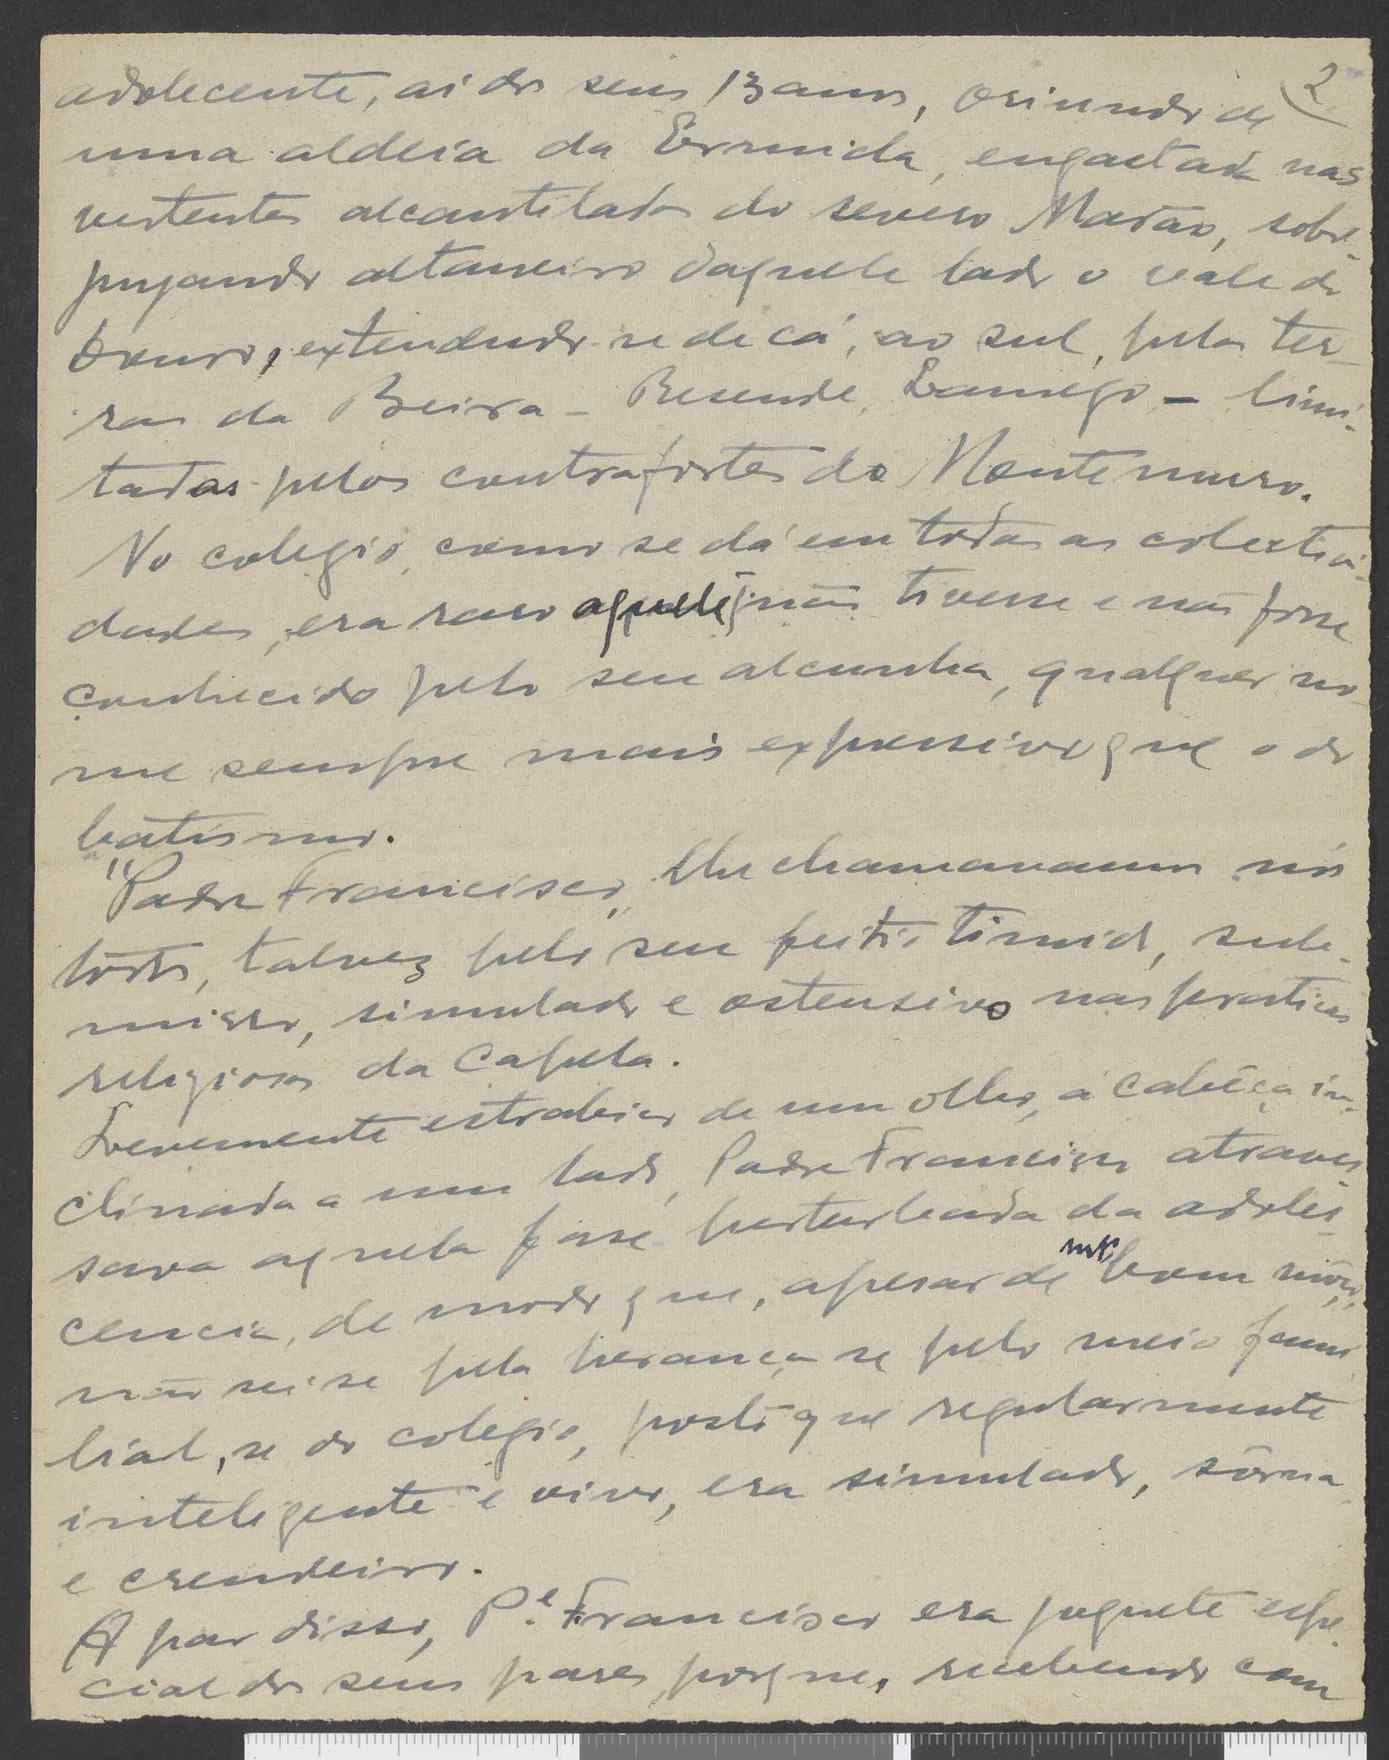 2
adolecente, aí dos seus 13 anos, oriundo de
uma aldeia da Ermida, engastada nas
vertentes alcantiladas do severo Marão, sobre-
pujando altaneiro daquele lado o vale do
Douro, extendendo-se de cá, ao sul, pelas ter-
ras da Beira - Resende, Lamego - limi-
tadas pelos contrafortes do Montemuro.
No colegio, como se dá em todas as colectivi-
dades, era raro aquele q não tivesse e não fosse
conhecido pelo seu alcunha, qualquer no-
me sempre mais expressivo que o do
batismo.
"Padre Francisco, lhe chamavamos nós
todos, talvez pelo seu feitio timido, sub-
misso, simulado e ostensivo nas praticas
religiosas da Capela.
Levemente estrabico de um olho, a cabêça in-
clinada a um lado, Padre Francisco atraves-
sava aquela fase perturbada da adoles-
cencia, de modo que, apesar de mt. bom môço,
não sei se pela herança, se pelo meio fami-
lial, se do colegio, posto que regularmente
inteligente e vivo, era simulado, sôrna
e crendeiro.
A par disso, P.e Francisco era joguete espe-
cial dos seus pares, porque, recebendo com